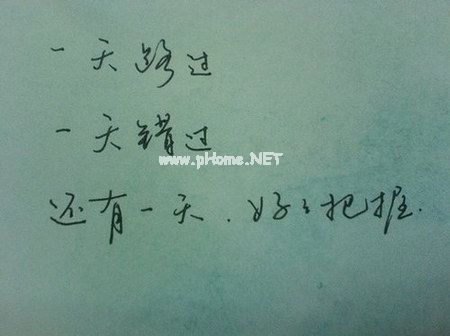 一天路过
一天错过
www.pHome.NET
还有一天.好々把握.